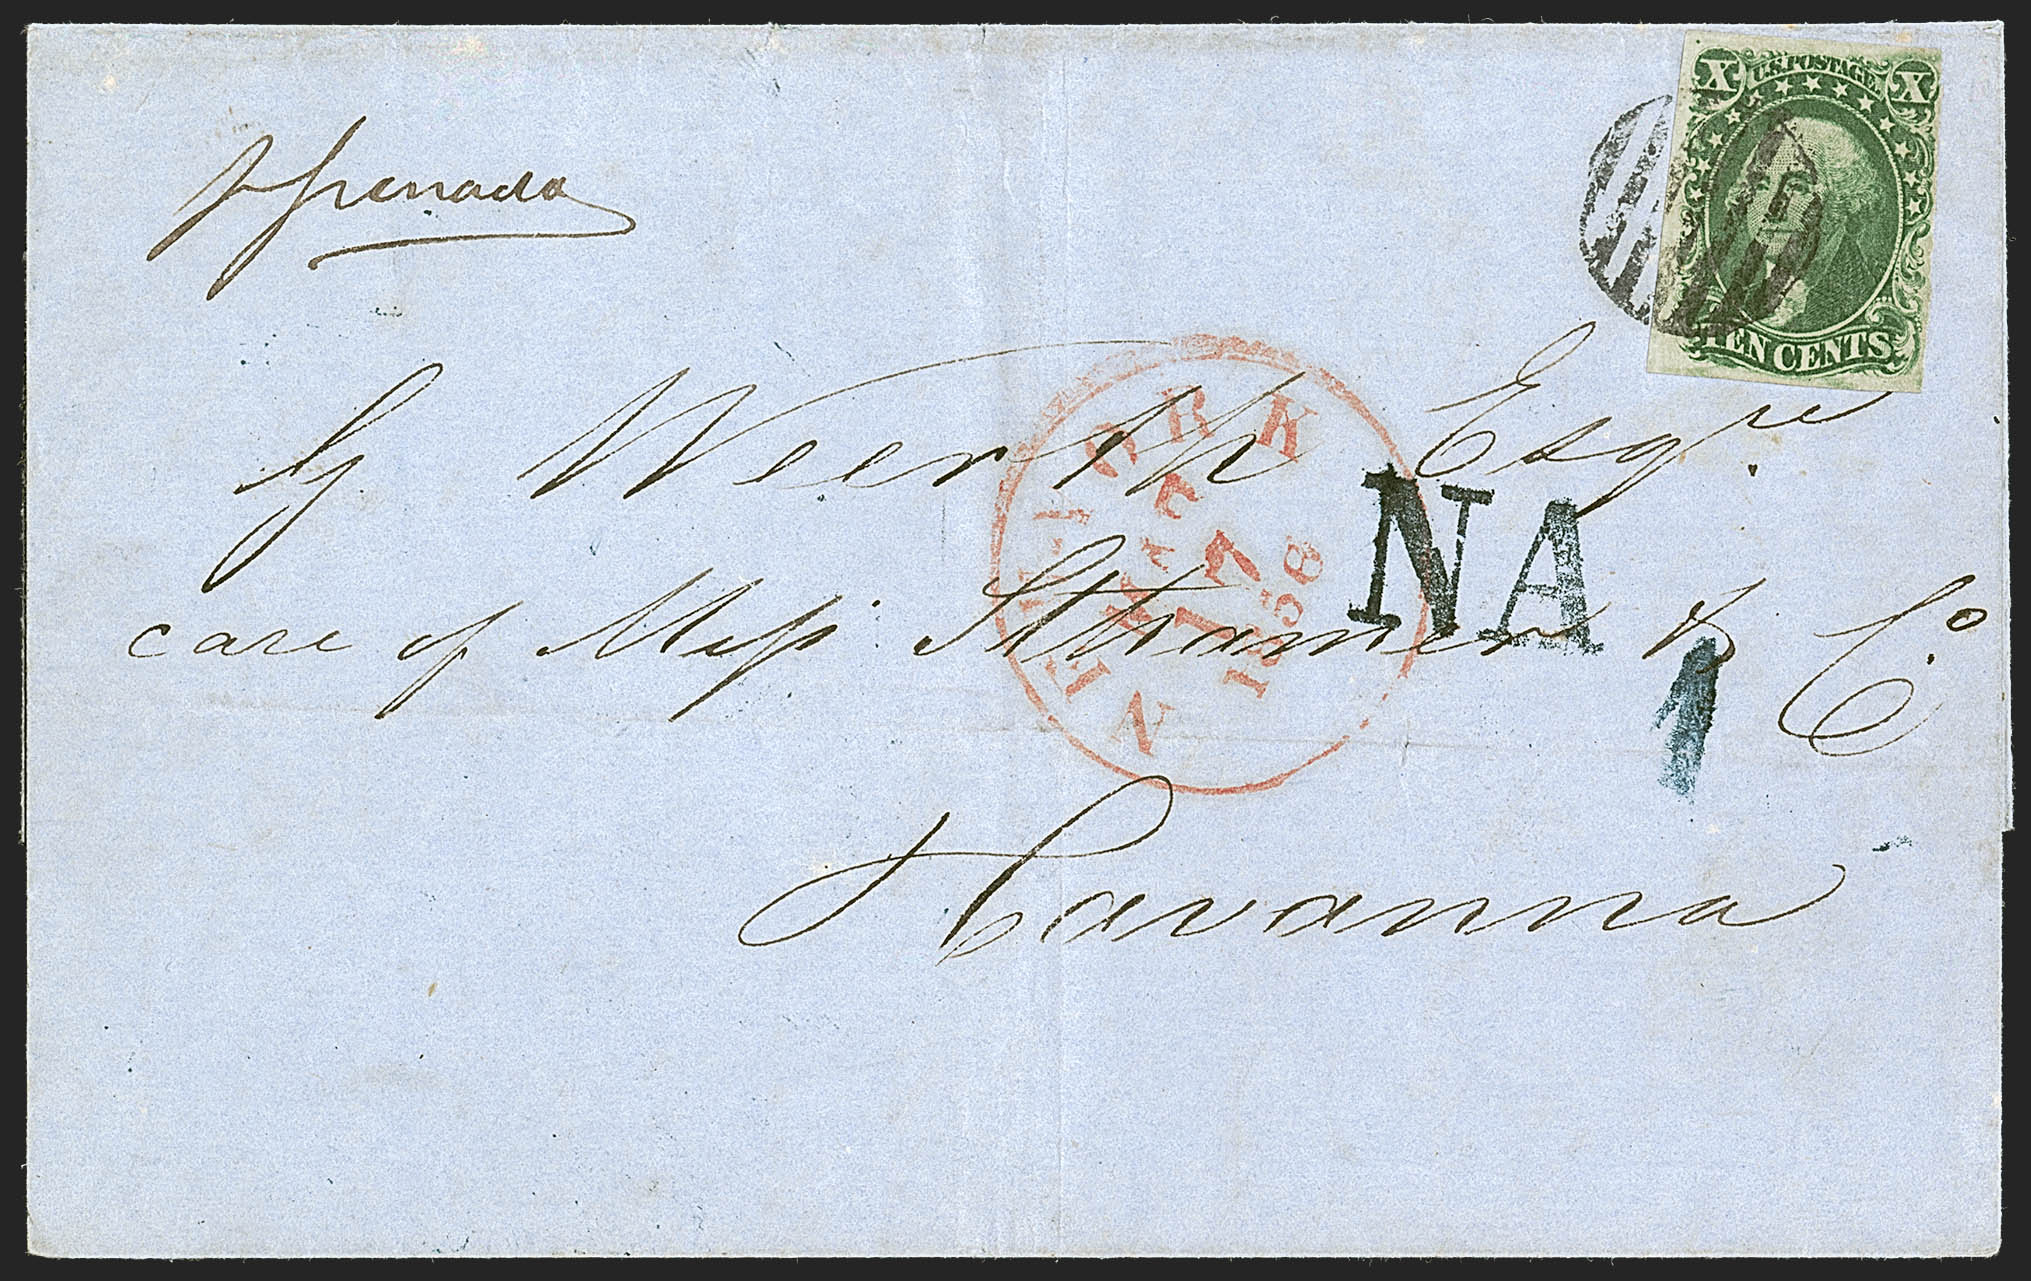 X U.S. POSTAGE X
TEN CENTS
p Grenada
G. Weerth Esqre
care of Mess: Sthamer & Co.
Havanna
NEW YORK
17
1858
NA
1